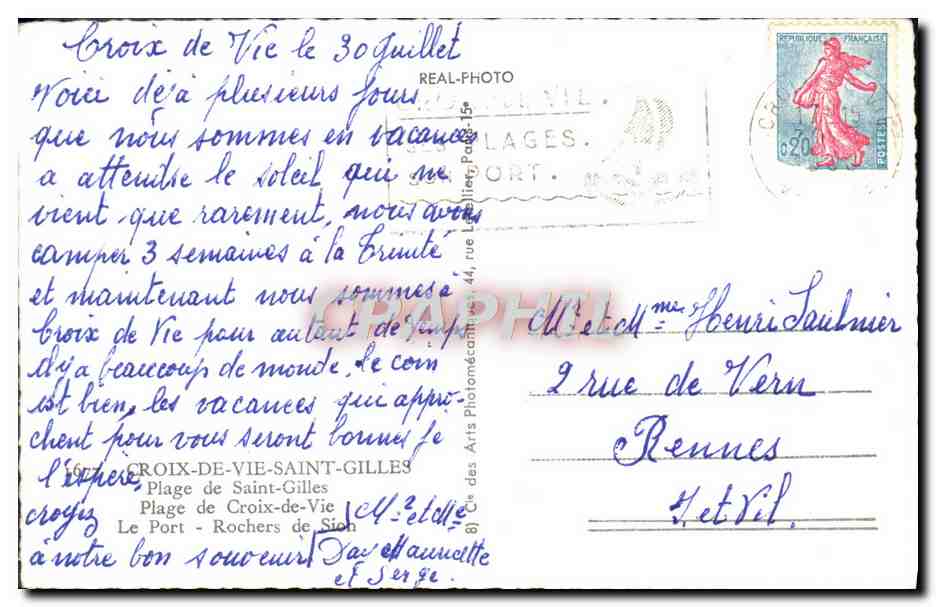 Croix de Vie le 30 Juillet
Voici déjà plusieurs jours
que nous sommes en vacances
a attendre le soleil qui ne
vient que rarement, nous avons
camper 3 semaines à la Trinité
et maintenant nous sommes à
Croix de Vie pour autant de temps
il y a beaucoup de monde, le coin
est bien, les vacances qui appro-
chent pour vous seront bonnes je
l'espère,
croyez
à notre bon souvenir
Mr et Me
Mauricette
et Serge.
REAL-PHOTO
PLAGES.
SON PORT.
REPUBLIQUE FRANÇAISE
0,20
POSTES
8) Cie des Arts Photomécaniques, 44, rue Letellier, Paris-15e
CHAPITEL
Mr et Mme Henri Saulnier
2 rue de Vern
Rennes
I et Vil.
CROIX-DE-VIE-SAINT-GILLES
Plage de Saint-Gilles
Plage de Croix-de-Vie
Le Port - Rochers de Sion